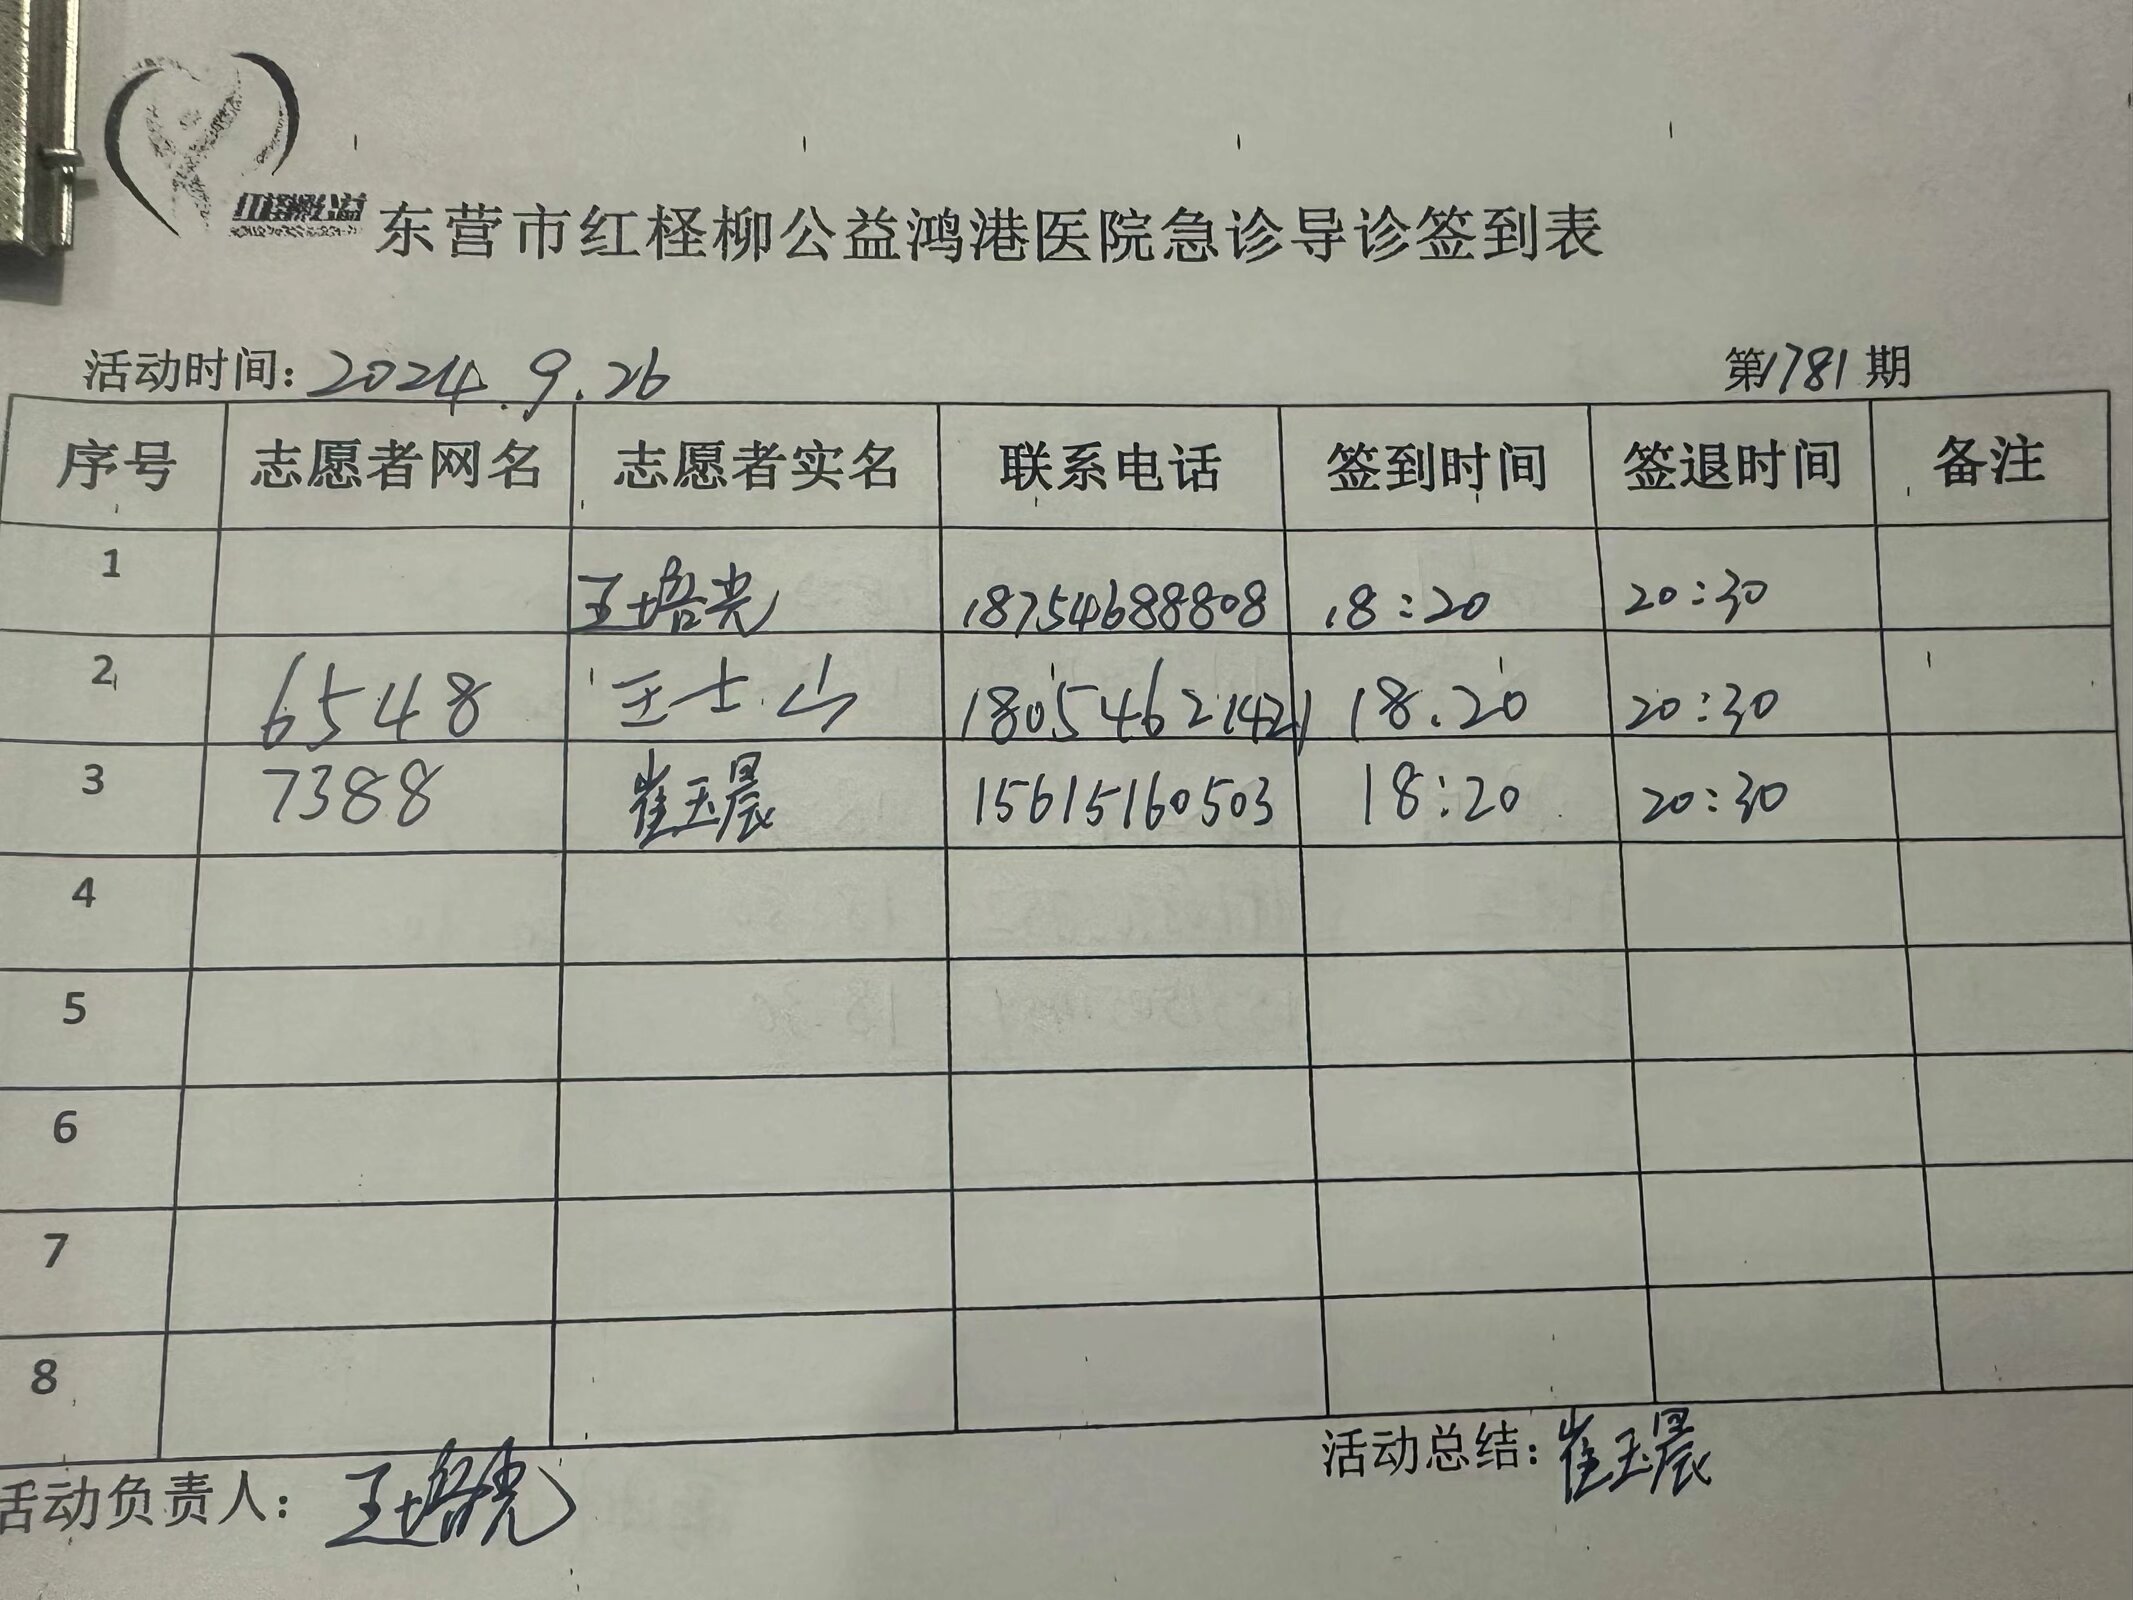 红柽柳公益
东营市红柽柳公益鸿港医院急诊导诊签到表
活动时间：2024.9.26 第1781期
序号 志愿者网名 志愿者实名 联系电话 签到时间 签退时间 备注
1 王培光 18754688808 18:20 20:30
2 6548 王士山 18054621421 18.20 20:30
3 7388 崔玉晨 15615160503 18:20 20:30
4
5
6
7
8
活动负责人：王培光 活动总结：崔玉晨